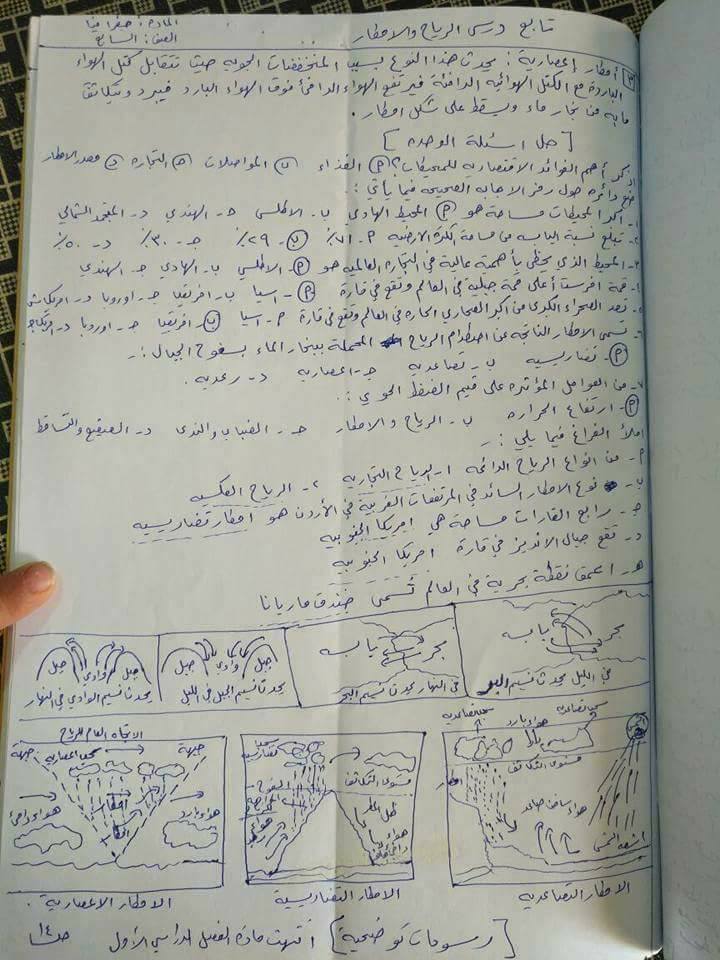 تابع درس الرياح والامطار
المادة: جغرافيا
الصف: السابع
٣ أمطار إعصارية: يحدث هذا النوع بسبب المنخفضات الجوية حيث تتقابل كتل الهواء
الباردة مع الكتل الهوائية الدافئة فيرتفع الهواء الدافئ فوق الهواء البارد فيبرد ويتكاثف
ما به من بخار ماء ويسقط على شكل امطار.
[حل اسئلة الوحدة]
اذكر أهم الفوائد الاقتصادية للمحيطات؟ أ الغذاء ب المواصلات ج التجارة د مصدر الامطار
ضع دائرة حول رمز الاجابة الصحيحة فيما يأتي:
١- اكبر المحيطات مساحة هو أ المحيط الهادي ب- الاطلسي ج- الهندي د- المتجمد الشمالي
٢- تبلغ نسبة اليابسة من مساحة الكرة الارضية أ- ٧١٪ ب- ٢٩٪ ج- ٣٠٪ د- ٥٠٪
٣- المحيط الذي يحظى بأهمية عالية في التجارة العالمية هو أ- الاطلسي ب- الهادي ج- الهندي
٤- قمة افرست أعلى قمة جبلية في العالم وتقع في قارة أ- اسيا ب- افريقيا ج- اوروبا د- امريكا ش
٥- تعد الصحراء الكبرى من اكبر الصحاري الحارة في العالم وتقع في قارة أ- اسيا ب- افريقيا ج- اوروبا د- امريكا ج
٦- تسمى الامطار الناتجة عن اصطدام الرياح المحملة ببخار الماء بسفوح الجبال:-
أ- تضاريسية ب- تصاعدية ج- اعصارية د- رعدية.
٧- من العوامل المؤثرة على قيم الضغط الجوي:-
أ- ارتفاع الحرارة ب- الرياح والامطار ج- الضباب والندى د- الصقيع والتساقط
املأ الفراغ فيما يلي:-
أ- من انواع الرياح الدائمة ١- الرياح التجارية ٢- الرياح العكسية
ب- نوع الامطار السائد في المرتفعات الغربية في الأردن هو امطار تضاريسية
ج- رابع القارات مساحة هي امريكا الجنوبية
د- تقع جبال الانديز في قارة امريكا الجنوبية
هـ- اعمق نقطة بحرية في العالم تسمى خندق ماريانا
بحر يابسه
في الليل يحدث نسيم البر
بحر يابسه
في النهار يحدث نسيم البحر
جبل وادي جبل
يحدث نسيم الجبل في الليل
جبل وادي جبل
يحدث نسيم الوادي في النهار
سحب تصاعدية هواء بارد سحب تصاعدية الشمس
مستوى التكاثف
امطار
هواء ساخن صاعد
اشعة الشمس
الامطار التصاعدية
سحب تضاريسية
مستوى التكاثف
ظل المطر
الامطار التضاريسية
الاتجاه العام للرياح
جبهة سحب اعصارية جبهة
امطار
هواء بارد
هواء دافئ
الامطار الاعصارية.
[رسومات توضيحية] انتهت مادة الفصل الدراسي الأول